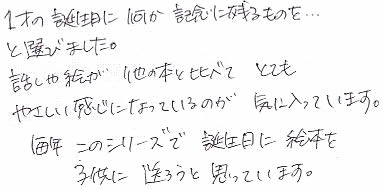 1才の誕生日に何か記念に残るものを…
と選びました。
話しや絵が他の本と比べてとても
やさしい感じになっているのが気に入っています。
毎年このシリーズで誕生日に絵本を
子供に送ろうと思っています。